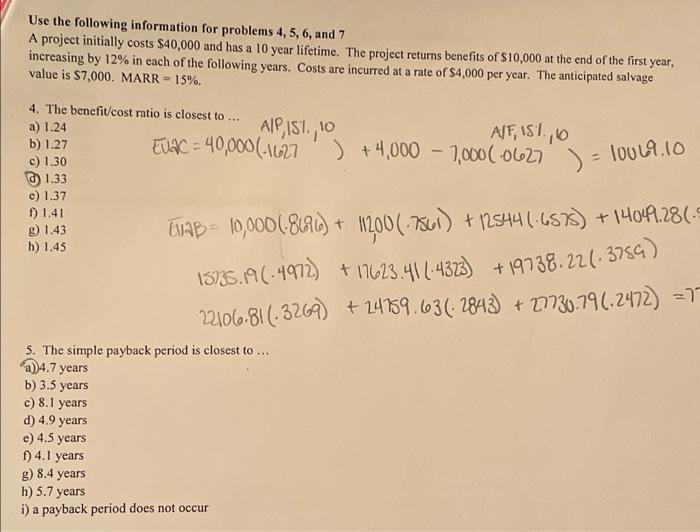 Use the following information for problems 4, 5, 6, and 7
A project initially costs $40,000 and has a 10 year lifetime. The project returns benefits of $10,000 at the end of the first year,
increasing by 12% in each of the following years. Costs are incurred at a rate of $4,000 per year. The anticipated salvage
value is $7,000. MARR = 15%.
4. The benefit/cost ratio is closest to ...
a) 1.24
b) 1.27
c) 1.30
d) 1.33
e) 1.37
f) 1.41
g) 1.43
h) 1.45
A/P, 15%, 10
A/F, 15%, 10
EUAC = 40,000(.1627 ) + 4,000 - 7,000(.0627 ) = 10069.10
EUAB = 10,000(.8696) + 11,200(.7561) + 12544(.6575) + 14049.28(.5
15735.19(.4972) + 17623.41(.4323) + 19738.22(.3759)
22106.81(.3269) + 24759.63(.2843) + 27730.79(.2472) =7
5. The simple payback period is closest to ...
a) 4.7 years
b) 3.5 years
c) 8.1 years
d) 4.9 years
e) 4.5 years
f) 4.1 years
g) 8.4 years
h) 5.7 years
i) a payback period does not occur